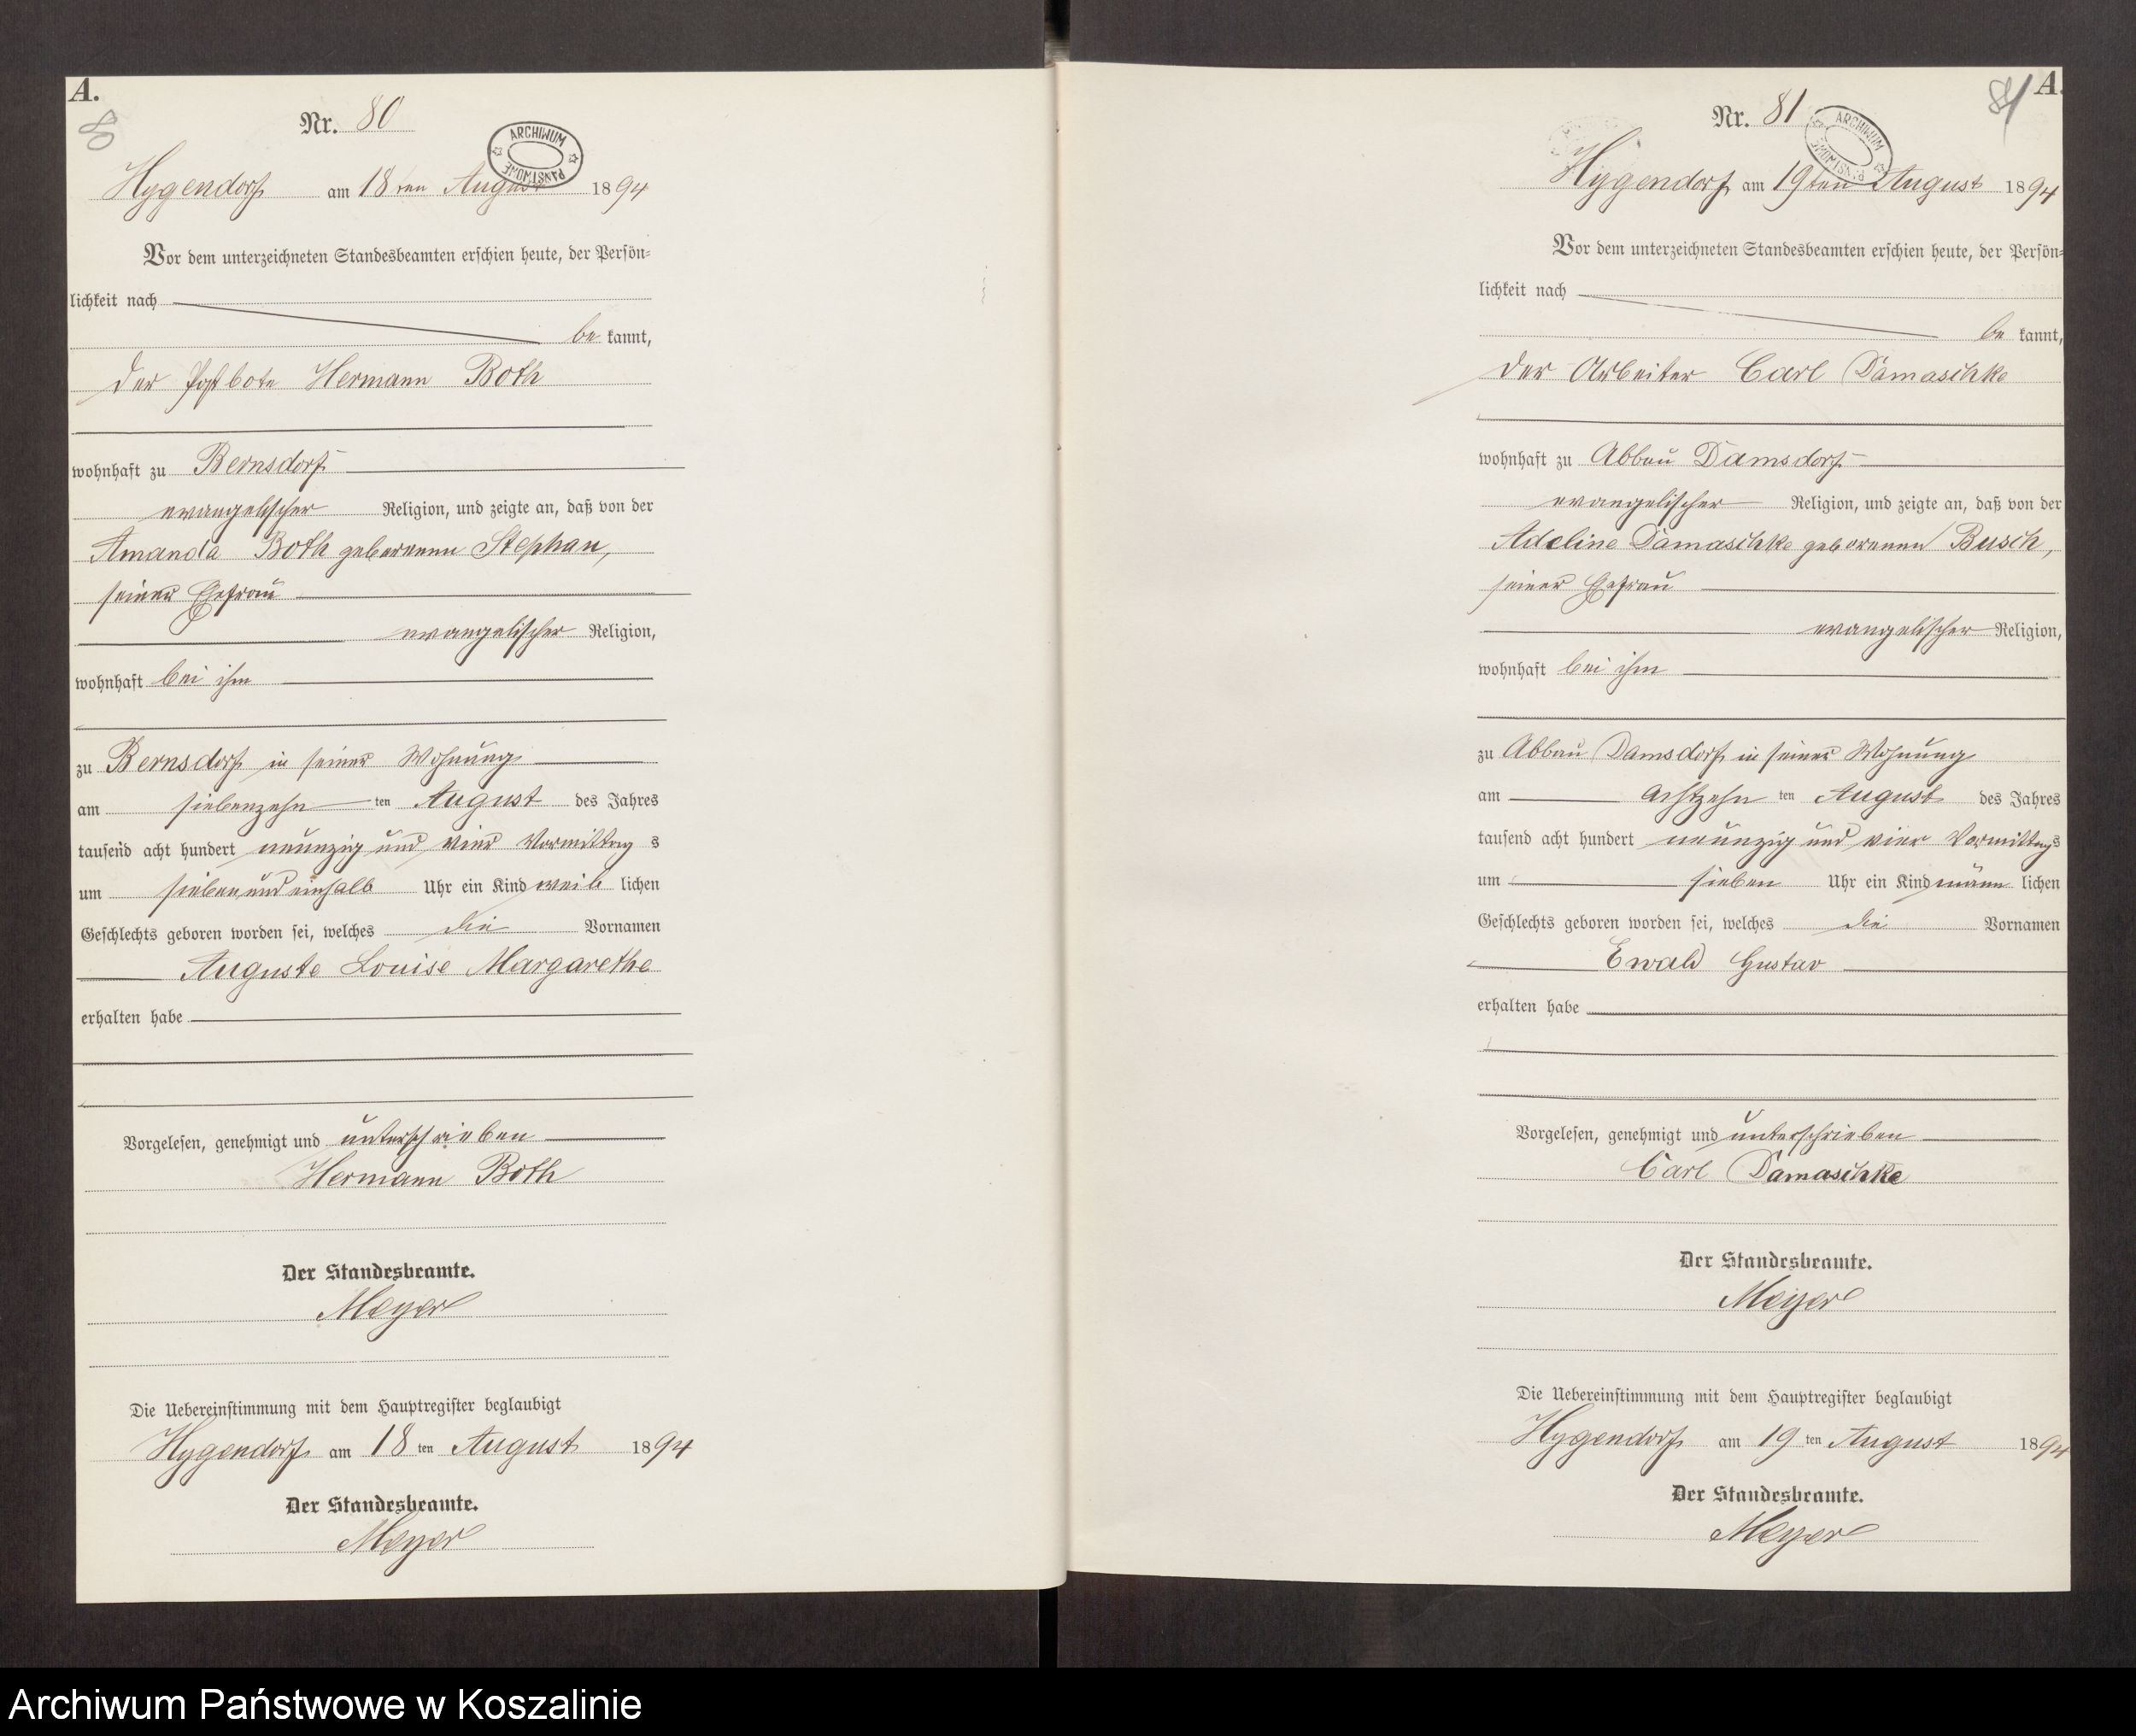 A.
80
Nr. 80
ARCHIWUM PAŃSTWOWE
Hygendorf am 18ten August 1894
Vor dem unterzeichneten Standesbeamten erschien heute, der Persön-
lichkeit nach
be kannt,
der Postbote Hermann Both
wohnhaft zu Bernsdorf
evangelischer Religion, und zeigte an, daß von der
Amanda Both geborenen Stephan,
seiner Ehefrau
evangelischer Religion,
wohnhaft bei ihm
zu Bernsdorf in seiner Wohnung
am siebenzehn ten August des Jahres
tausend acht hundert neunzig und vier Vormittag s
um sieben und einhalb Uhr ein Kind weib lichen
Geschlechts geboren worden sei, welches die Vornamen
Auguste Louise Margarethe
erhalten habe
Vorgelesen, genehmigt und unterschrieben
Hermann Both
Der Standesbeamte.
Meyer
Die Uebereinstimmung mit dem Hauptregister beglaubigt
Hygendorf am 18 ten August 1894
Der Standesbeamte.
Meyer
A.
81
Nr. 81
ARCHIWUM PAŃSTWOWE
Hygendorf am 19ten August 1894
Vor dem unterzeichneten Standesbeamten erschien heute, der Persön-
lichkeit nach
be kannt,
der Arbeiter Carl Damaschke
wohnhaft zu Abbau Damsdorf
evangelischer Religion, und zeigte an, daß von der
Adeline Damaschke geborenen Busch,
seiner Ehefrau
evangelischer Religion,
wohnhaft bei ihm
zu Abbau Damsdorf in seiner Wohnung
am achtzehn ten August des Jahres
tausend acht hundert neunzig und vier Vormittags
um sieben Uhr ein Kind männ lichen
Geschlechts geboren worden sei, welches die Vornamen
Ewald Gustav
erhalten habe
Vorgelesen, genehmigt und unterschrieben
Carl Damaschke
Der Standesbeamte.
Meyer
Die Uebereinstimmung mit dem Hauptregister beglaubigt
Hygendorf am 19 ten August 1894
Der Standesbeamte.
Meyer
Archiwum Państwowe w Koszalinie